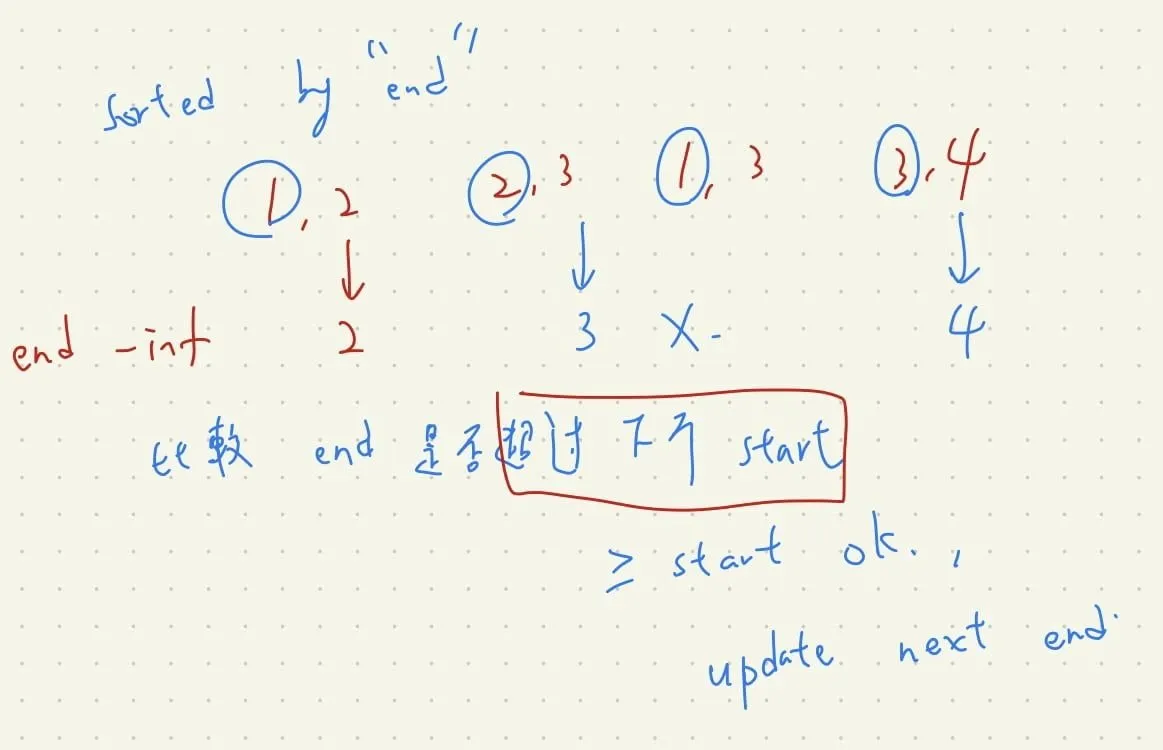 sorted by "end"
1, 2 2, 3 1, 3 3, 4
end -inf 2 3 X 4
比較 end 是否超过下个 start
≥ start ok.,
update next end.